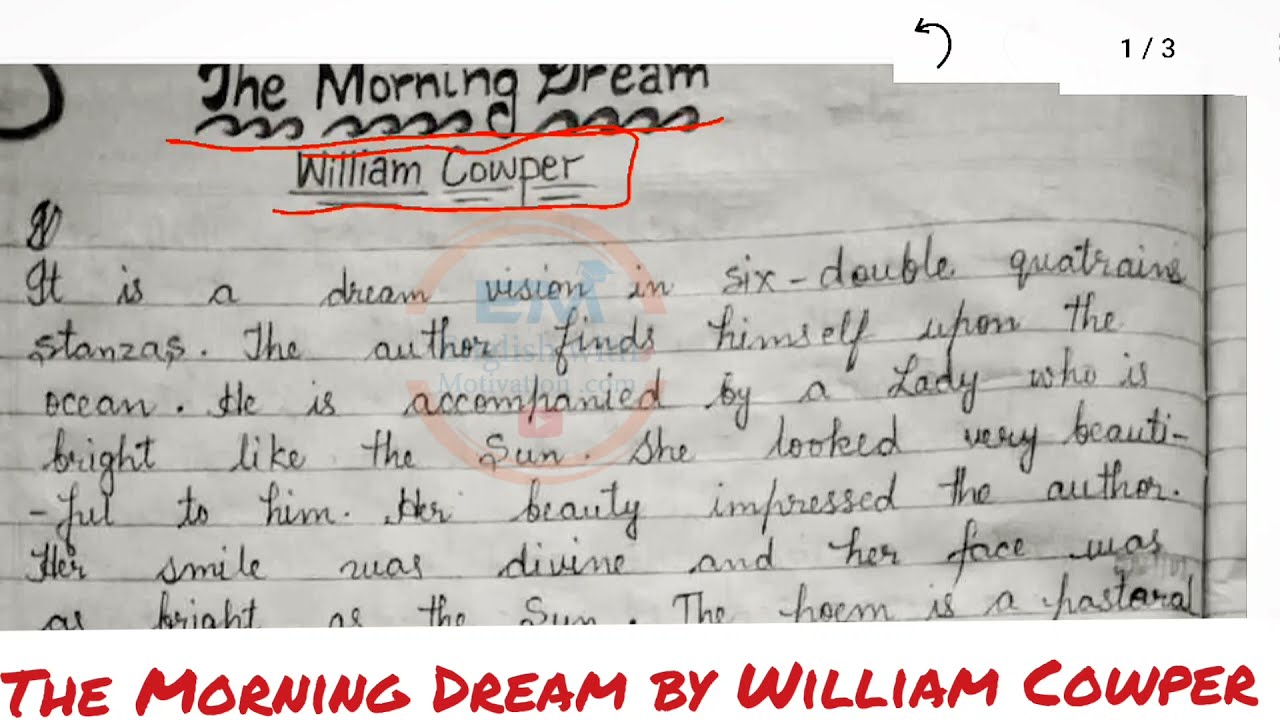 1 / 3
The Morning Dream
William Cowper
It is a dream vision in six-double quatrains
stanzas. The author finds himself upon the
ocean. He is accompanied by a Lady who is
bright like the Sun. She looked very beauti-
-ful to him. Her beauty impressed the author.
Her smile was divine and her face was
as bright as the Sun. The poem is a pastoral
EM
English with
Motivation.com
The Morning Dream by William Cowper